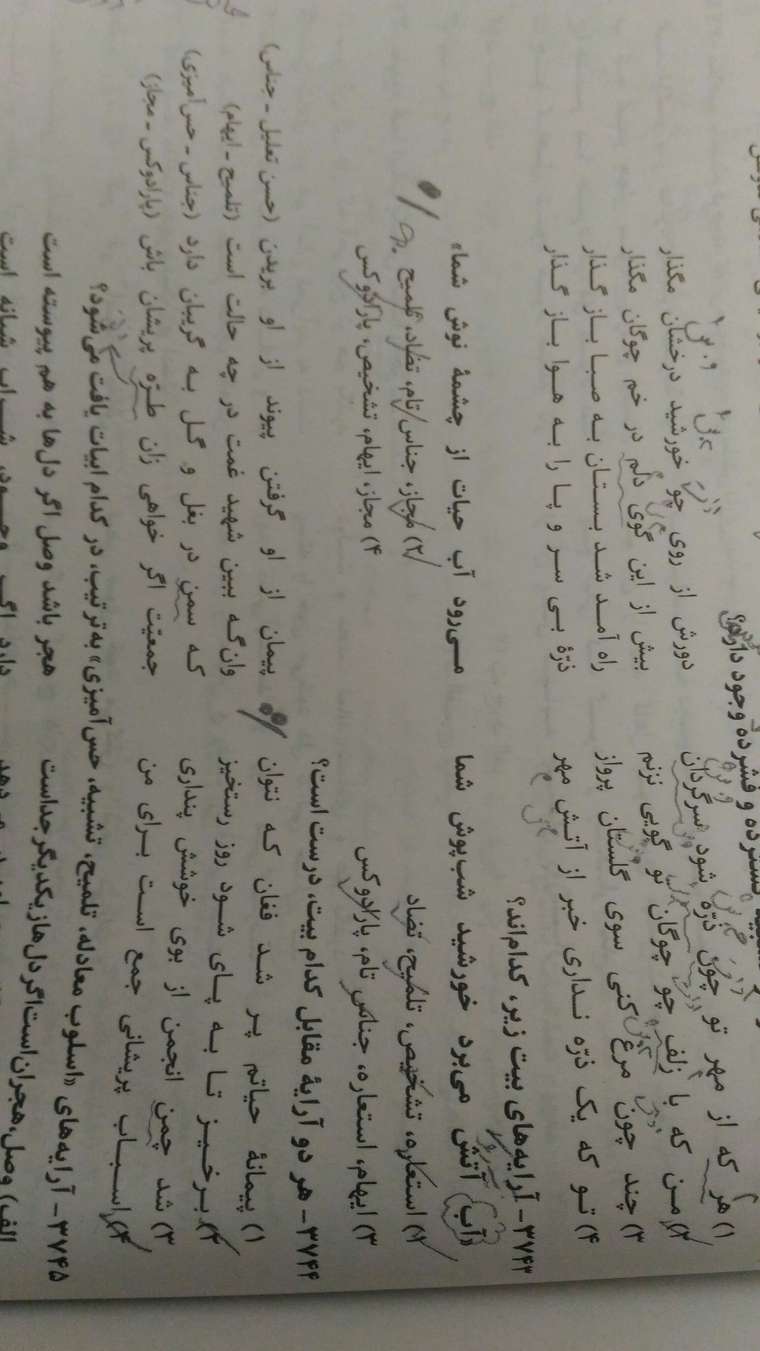 گسترده و فشرده وجود دارد؟
۱) هر که از مهر تو چون ذرّه شود سرگردان دورش از روی چو خورشید درخشان مگذار
۲) من که با زلف چو چوگان تو گویی نزنم بیش از این گوی دلم در خم چوگان مگذار
۳) چند چون مرغ کنی سوی گلستان پرواز راه آمد شد بستان به صبا باز گذار
۴) تو که یک ذرّه نداری خبر از آتش مهر ذرّهٔ بی سر و پا را به هوا باز گذار
۳۷۴۳- آرایه‌های بیت زیر، کدام‌اند؟
«آب آتش می‌برد خورشید شب‌پوش شما می‌رود آب حیات از چشمهٔ نوش شما»
۱) استعاره، تشخیص، تلمیح، تضاد ۲) مجاز، جناس تام، تضاد، تلمیح
۳) ایهام، استعاره، جناس تام، پارادوکس ۴) مجاز، ایهام، تشخیص، پارادوکس
۳۷۴۴- هر دو آرایهٔ مقابل کدام بیت، درست است؟
۱) پیمانهٔ حیاتم پر شد فغان که نتوان پیمان از او گرفتن پیوند از او بریدن (حسن تعلیل - جناس)
۲) برخیز تا به پای شود روز رستخیز وان‌گه ببین شهید غمت در چه حالت است (تلمیح - ایهام)
۳) شد چمن انجمن از بوی خوشش پنداری که سمن در بغل و گل به گریبان دارد (جناس - حس‌آمیزی)
۴) اسباب پریشانی جمع است برای من جمعیّت اگر خواهی زان طرّه پریشان باش (پارادوکس - مجاز)
۳۷۴۵- آرایه‌های «اسلوب معادله، تلمیح، تشبیه، حس‌آمیزی» به‌ترتیب، در کدام ابیات یافت می‌شود؟
الف) وصل، هجران است اگر دل‌ها از یکدیگر جداست هجر باشد وصل اگر دل‌ها به هم پیوسته است
دارد اگر وجود، شراب شبانه است